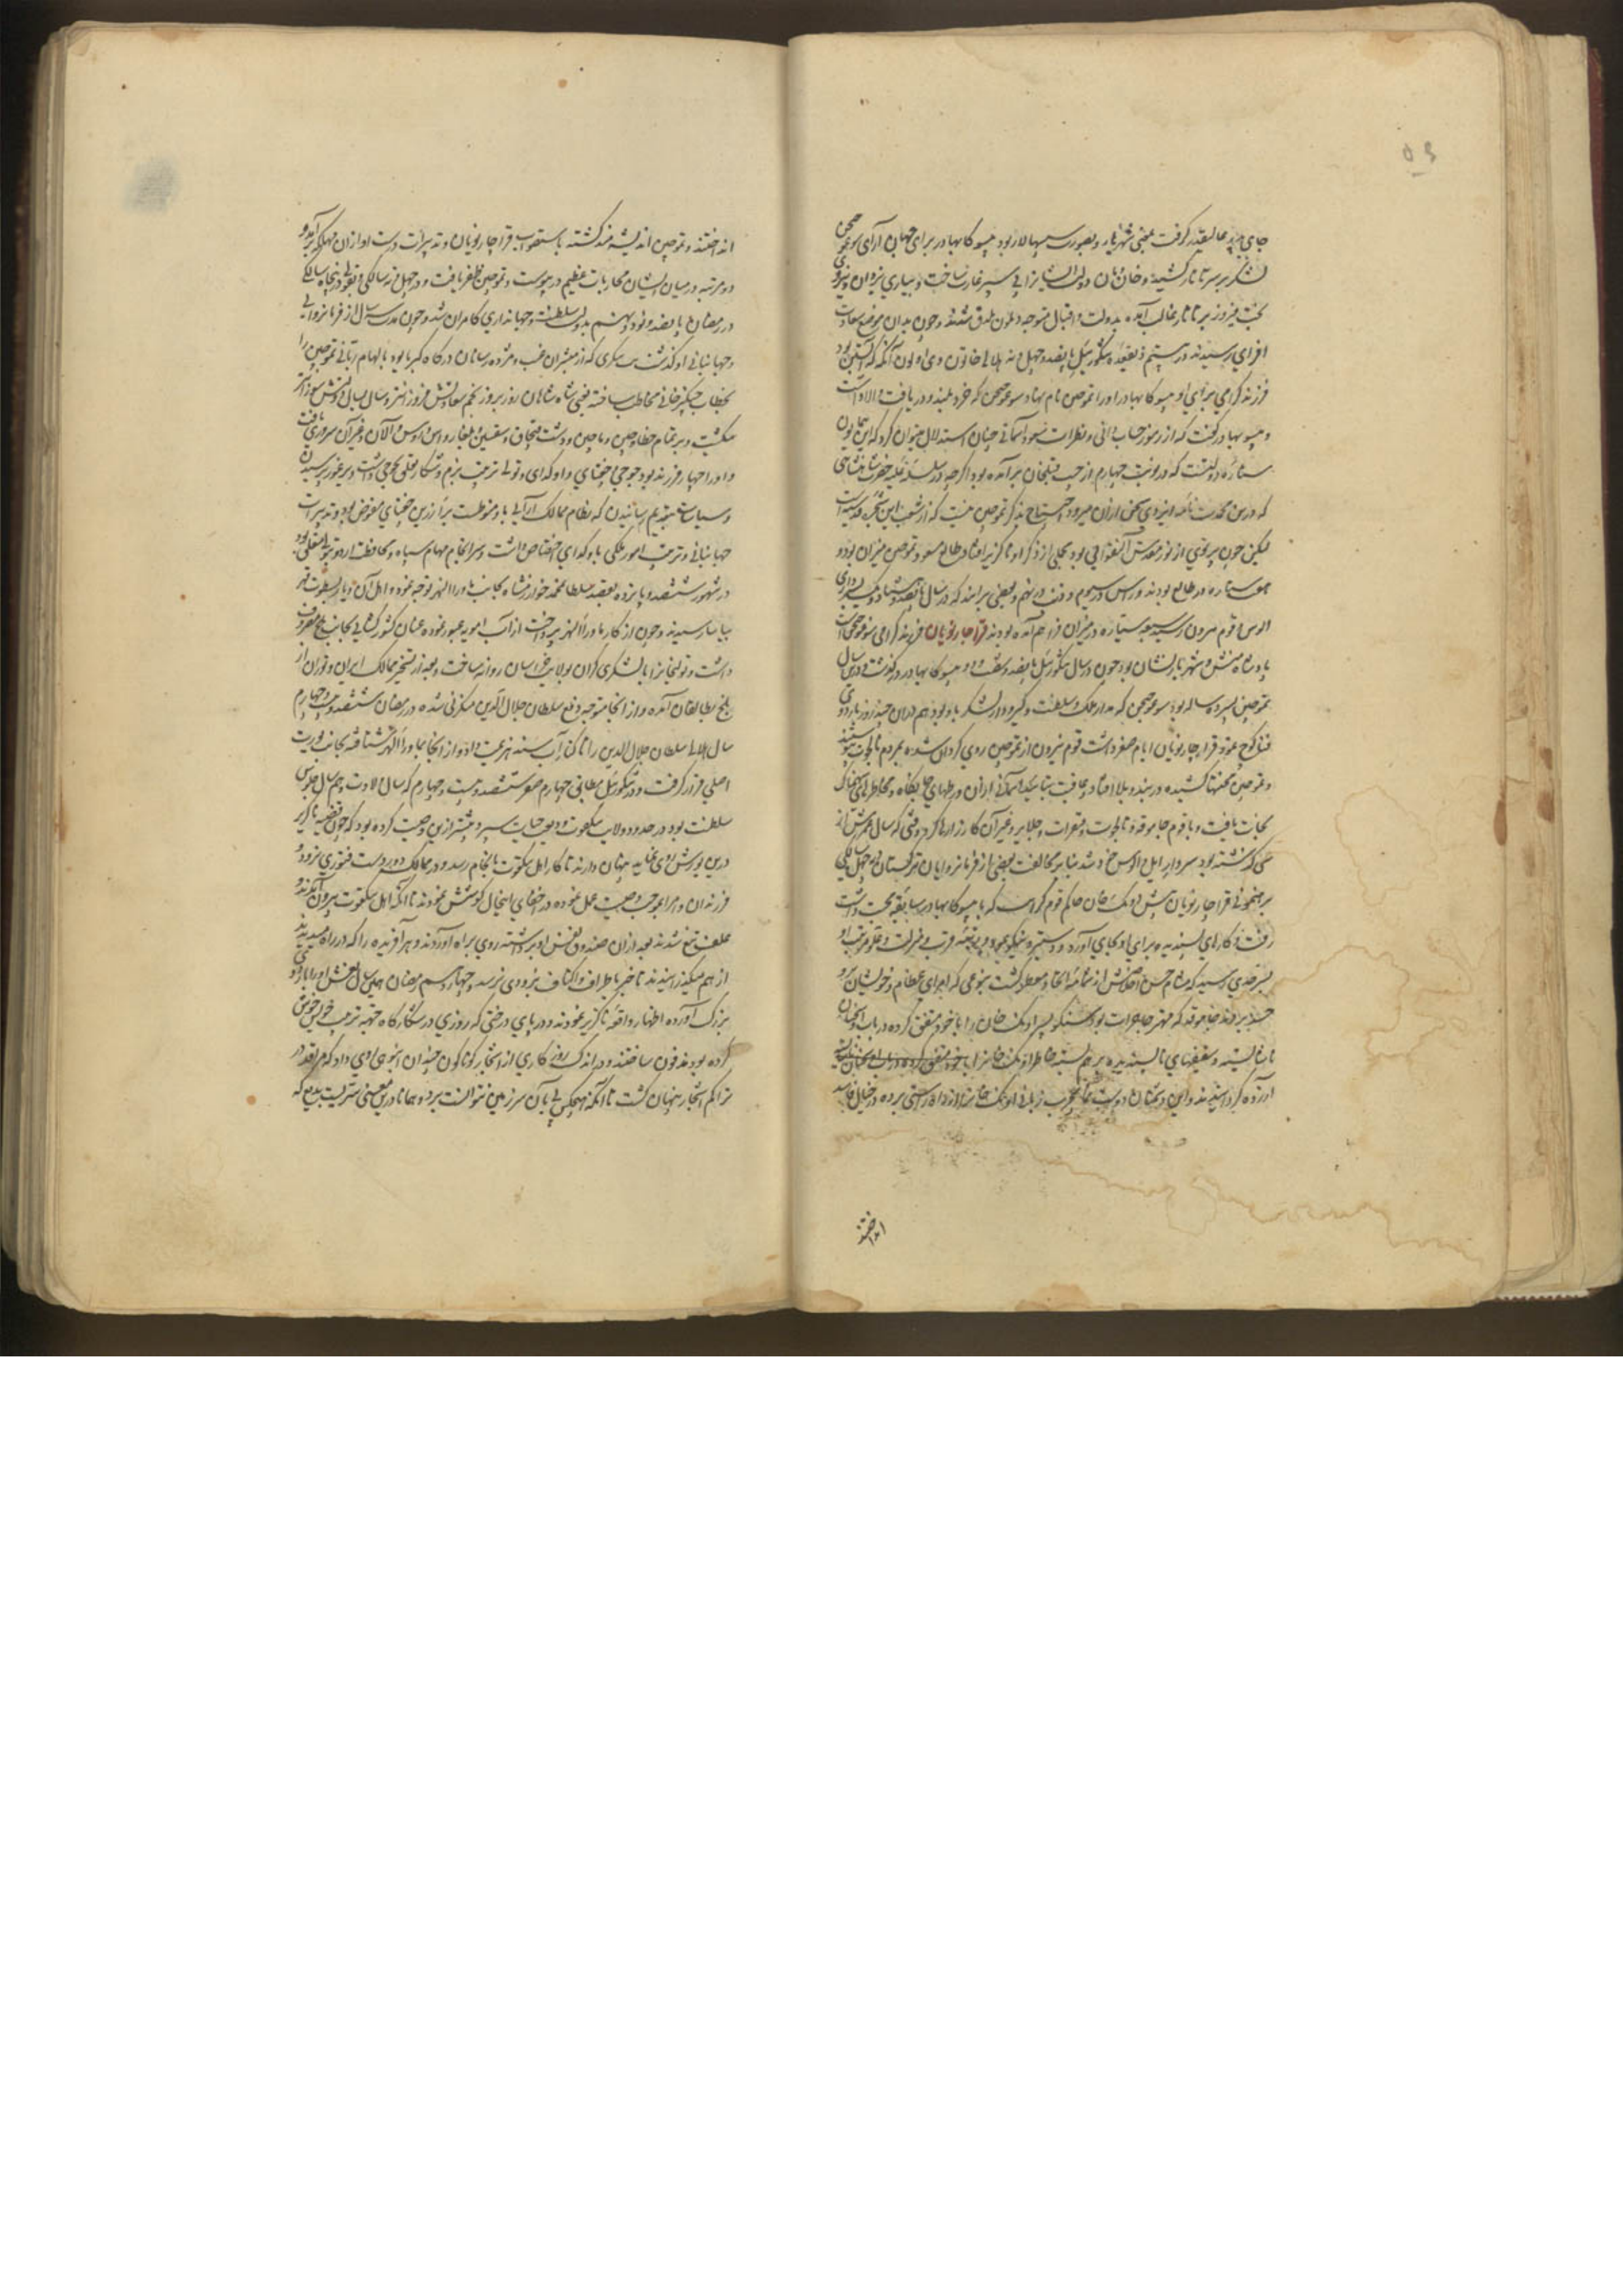 جای پدر عالیقدر گرفت بمعنی شهریار و بصورت سپهسالار بود یسوکا بهادر برای جهان آرای سوغوجیجن
لشکر بر سر تاتار کشیده و خان و مان دولت ایشانرا پی سپر غارت ساخت و بیاری یزدان و نیروی
بخت فیروز بر تاتار غالب آمده بدولت و اقبال متوجه دیلون یلدق شدند و چون بدان موضع سعادت
افزای رسیدند در بیستم ذیقعده تنکوزئیل پانصد و چهل و نه هلالی خاتون وی اولون آنکه که آبستن بود
فرزند گرامی برزاد یسوکا بهادر او را تموچین نام نهاد سوغوجیجن که خرد بلند و دریافت والا داشت
و یسوکا بهادر گفت که از رموز حساب دانی و نظرات سعود آسمانی چنان استدلال میتوان کرد که این همایون
ستاره دولتست که در نوبت چهارم از جیب قبلخان برآمده بود اگرچه در سلسله علیه حضرت شاهنشاهی
که درین محمدت نامه ایزدی سخن از آن میرود احتیاج بذکر تموچین نیست که از شعب این شجره قدسیه است
لیکن چون پرتوی از نور مقدس آلنقوا بود مجملی از ذکر او ناگزیر افتاد طالع مسعود تموچین میزان بود و
سبعه سیاره در طالع بودند و راس در سیوم و ذنب در نهم و بعضی برآنند که در سال پانصد و هشتاد و یک سرداری
الوس قوم نیرون رسید سبعه سیاره در میزان فراهم آمده بودند قراچار نویان فرزند گرامی سوغوجیجن است
پادشاه منش و شهریار نشان بود چون در سال تنکوزئیل پانصد و شصت و دو یسوکا بهادر در گذشت و درین سال
تموچین سیزده ساله بود سوغوجیجن که مدار ملک و سلطنت و گیر و دار لشکر باو بود هم در آن چند روز باردوی
فنا کوچ نمود قراچار نویان ایام صغر داشت قوم نیرون از تموچین روی گردان شده بمردم تایجوت پیوستند
و تموچین محنتها کشیده در بند و بلا افتاد و عاقبت بتائید آسمانی از آن ورطهای جانکاه و مخاطرهای سهمناک
نجات یافت و با قوم جاموقه و تایجوت و قنقرات و جلایر و غیر آن کارزارها کرد و وقتی که سال عمرش از
سی گذشته بود سردار ایل و الوس خود شد بنابر مخالفت بعضی از فرمانروایان ترکستان در چهل سالگی
برهنمونی قراچار نویان پیش اونک خان حاکم قوم کرایت که با یسوکا بهادر سابقه محبت داشت
رفت و کارهای پسندیده برای او بجای آورد و دستبرد نیکو نمود و پایه قرب و منزلت و علو مرتبت او
بسرحدی رسید که مشام حسن اخلاصش از شمامه اتحاد معطر گشت بنوعی که امرای عظام و خویشان او
حسد بردند جاموقه که مهتر جاجرات بود سنکو پسر اونک خان را با خود متفق کرده در باب او سخنان
ناشایسته و سفیههای ناپسندیده بر هم بسته خاطر اونک خانرا
آزرده گردانیدند و این دشمنان دوست نما بچرب زبانی اونک خانرا از راه راستی برده در خیال فاسد
انداختند
انداختند و تموچین اندیشه‌مند گشته باستصواب قراچار نویان و تدبیرات درست او از آن مهلکه برآمد و
دو مرتبه در میان ایشان محاربات عظیم در پیوست و تموچین ظفر یافت و در چهل و نه سالگی و بقولی در پنجاه سالگی
در رمضان پانصد و نود و نهم بدولت سلطنت و جهانداری کامران شد و چون مدت سه سال از فرمانروایی
و جهانبانی او گذشت بت تنکری که از مبشران غیب و مژده رسانان درگاه کبریا بود بالهام ربانی تموچین را
بخطاب چنگیز خانی مخاطب ساخته یعنی شاه شاهان روز بروز نجم سعادتش فروزانتر و سال بسال آتش سطوتش سوزانتر
میگشت و بر تمام خطا و ختن و چین و ماچین و دشت قبچاق و سقسین و بلغار و آس و روس و آلان و غیر آن سروری یافت
و او را چهار فرزند بود جوجی چغتای و اوکدای و تولی ترتیب بزم و شکار متعلق بجوجی داشت و یرغو پرسیدن
و سیاست بتقدیم رسانیدن که نظام ممالک آرایی باو منوط است برای رزین چغتای مفوض بود و تدبیرات
جهانبانی و ترتیب امور ملکی باوکدای اختصاص داشت و سرانجام مهام سپاه و محافظت اردو بتولی متعلق بود
در شهور ششصد و پانزده بقصد سلطان محمد خوارزمشاه بجانب ماوراالنهر توجه نمود و اهل آن دیار بسطوت قهر
بیاسا رسیدند و چون از کار ماوراالنهر پرداخت از آب آمویه عبور نموده عنان کشور گشایی بجانب بلخ معطوف
داشت و تولیخانرا با لشکری گران بولایت خراسان روانه ساخت و بعد از تسخیر ممالک ایران و توران از
بلخ بطالقان آمده و از آنجا متوجه دفع سلطان جلال الدین منکبرنی شده در رمضان ششصد و بیست و چهارم
سال هلالی سلطان جلال الدین را تا کنار آب سند هزیمت داد و از آنجا بماوراالنهر شتافته بجانب یورت
اصلی قرار گرفت و در تنکوزئیل مطابق چهارم صفر ششصد و بیست و چهارم که سال ولادت و هم سال جلوس
سلطنت بود در حدود ولایت تنکقوت ودیعت حیات سپرد و پیشتر ازین وصیت کرده بود که چون قضیه ناگزیر
درین یورش روی نماید پنهان دارند تا کار اهل تنکقوت بانجام رسد و در ممالک دوردست فتوری نرود
فرزندان و امرا بموجب وصیت عمل نموده در اخفای اینحال کوشش نمودند تا آنکه اهل تنکقوت بیرون آمده
علف تیغ شدند بعد از آن صندوق نعش او برداشته روی براه آوردند و هر آفریده را که در راه میدیدند
از هم میگذرانیدند تا خبر باطراف و اکناف بزودی نرسد و چهاردهم رمضان همین سال نعش او را باردوی
بزرگ آورده اظهار واقعه ناگزیر نمودند و در پای درختی که روزی در شکارگاه جهته ترتیب خواب خویش
کرده بود مدفون ساختند و در اندک روزگاری از اشجار گوناگون چندان انبوهی روی داد که مرقد در
تراکم اشجار پنهان گشت تا آنکه هیچکس پی بآن سرزمین نتوانست برد و همانا درین معنی سریست بدیع که